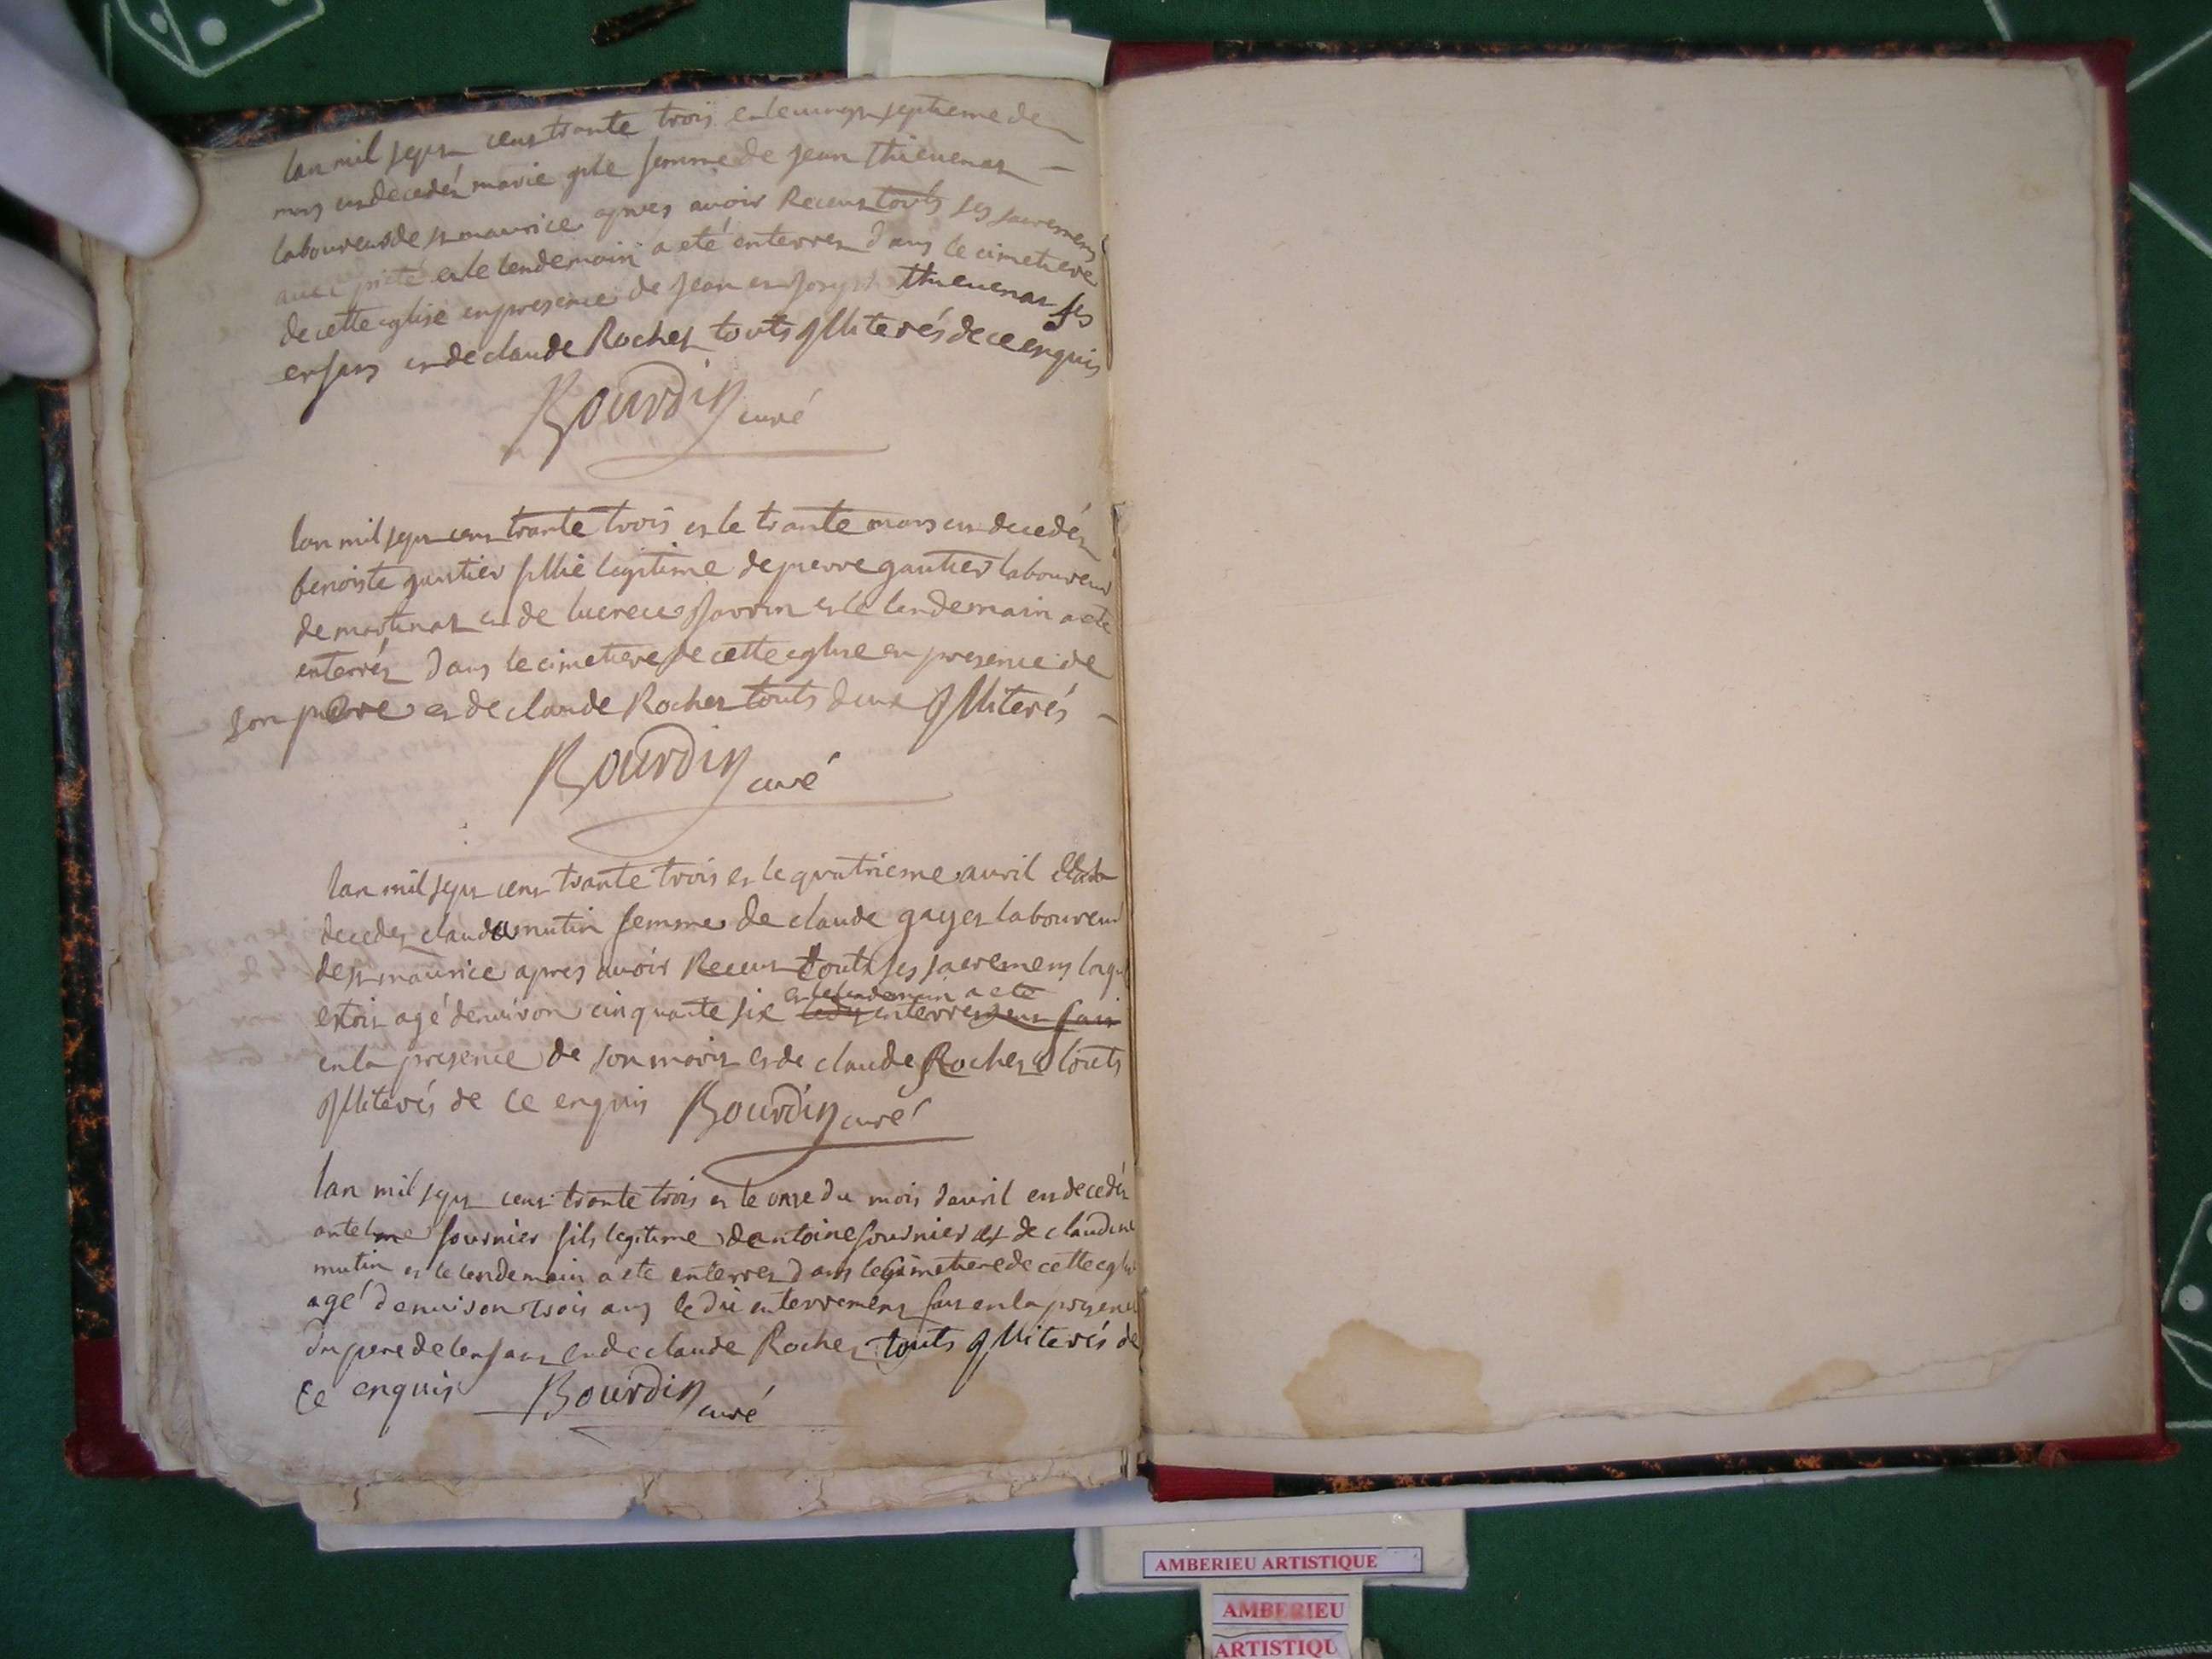 lan mil sept cens trante trois et le vingt septieme de
mars est decedéz marie gule femme de jean thieuenat
laboureur de st maurice apres auoir Receus touts ses sacremens
auec pieté et le lendemain a eté enterrez dans le cimetiere
de cette eglise en presence de jean et joseph thieuenat ses
enfans et de claude Rochet touts illiterés de ce enquis
Bourdin curé
lan mil sept cens trante trois et le trante mars est decedéz
benoiste gautier fillie legitime de pierre gautier laboureur
de martinat et de lucrece et le lendemain a ete
enterréz dans le cimetiere de cette eglise en presence de
son pere et de claude Rochet touts deux illiterés
Bourdin curé
lan mil sept cens trante trois et le quatrieme auril
decedez clauda mutin femme de claude gayet laboureur
de st maurice apres auoir Receus touts ses sacremens laqu
estoit agé denuiron cinquante six et le lendemain a eté enterre
en la presence de son marit et de claude Rochet touts
illiterés de ce enquis Bourdin curé
lan mil sept cens trante trois et le onze du mois dauril est decedéz
antelme fournier fils legitime dantoine fournier et de claudine
mutin et le lendemain a ete enterrez dans le cimetiere de cette eglise
agé denuiron trois ans le dit enterrement fait en la presence
du pere de lenfant et de claude Rochet touts illiterés de
ce enquis Bourdin curé
AMBERIEU ARTISTIQUE
AMBERIEU
ARTISTIQU